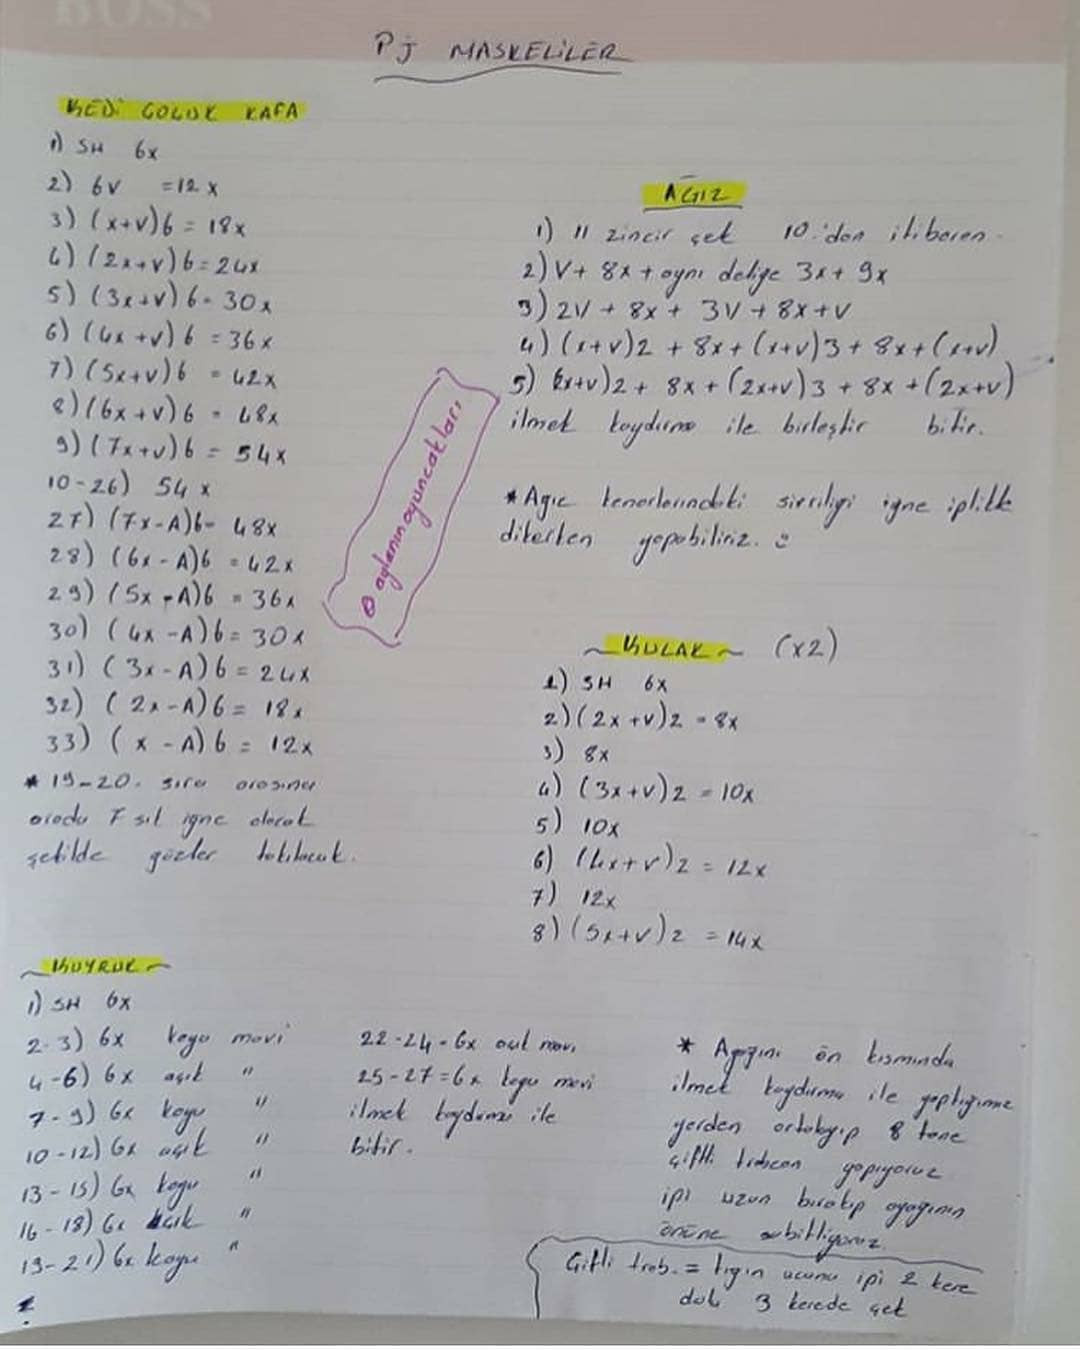 BOSS
PJ MASKELİLER
KEDİ ÇOCUK KAFA
1) SH 6x
2) 6v =12x
3) (x+v)6 = 18x
4) (2x+v)6 = 24x
5) (3x+v) 6 = 30x
6) (4x+v) 6 = 36x
7) (5x+v)6 = 42x
8) (6x+v)6 = 48x
9) (7x+v)6 = 54x
10-26) 54 x
27) (7x-A)6= 48x
28) (6x-A)6 = 42x
29) (5x-A)6 = 36x
30) (4x-A)6 = 30x
31) (3x-A)6 = 24x
32) (2x-A)6 = 18x
33) (x-A)6 = 12x
* 19-20. sıra arasına
arada 7 sık iğne olacak
şekilde gözler takılacak.
@aylaninoyuncaklari
AĞIZ
1) 11 zincir çek 10.'dan itibaren
2) V+ 8x + aynı deliğe 3x + 9x
3) 2V + 8x + 3V + 8x + V
4) (x+v)2 + 8x + (x+v)3 + 8x + (x+v)
5) (2x+v)2 + 8x + (2x+v)3 + 8x + (2x+v)
ilmek kaydırma ile birleştir bitir.
* Ağız kenarlarındaki sivriliği iğne iplikle
dikerken yapabiliriz.
~KULAK~ (x2)
1) SH 6x
2) (2x+v)2 = 8x
3) 8x
4) (3x+v)2 = 10x
5) 10x
6) (4x+v)2 = 12x
7) 12x
8) (5x+v)2 = 14x
~KUYRUK~
1) SH 6x
2-3) 6x koyu mavi
4-6) 6x açık "
7-9) 6x koyu "
10-12) 6x açık "
13-15) 6x koyu "
16-18) 6x açık "
19-21) 6x koyu "
22-24 = 6x açık mavi
25-27 = 6x koyu mavi
ilmek kaydırma ile
bitir.
* Ayağın ön kısmında
ilmek kaydırma ile yaptığımız
yerden ortalayıp 8 tane
çiftli trabzan yapıyoruz
ipi uzun bırakıp ayağının
önüne sabitliyoruz.
Çiftli trab. = tığın ucuna ipi 2 kere
dola 3 kerede çek